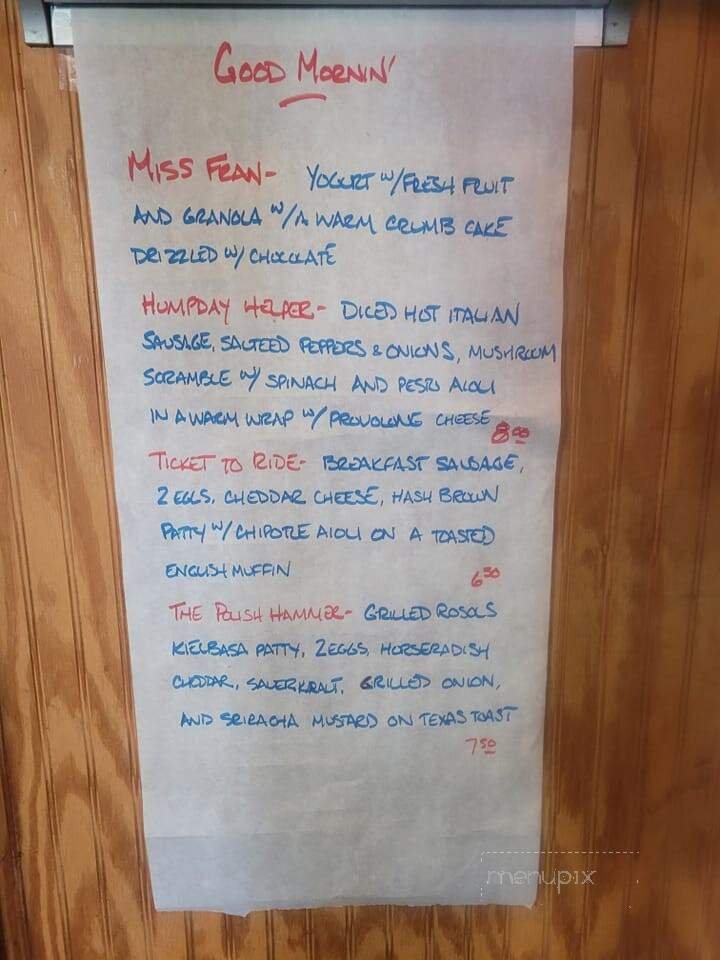 GOOD MORNIN'
MISS FRAN- YOGURT W/FRESH FRUIT
AND GRANOLA W/A WARM CRUMB CAKE
DRIZZLED W/ CHOCOLATE
HUMPDAY HELPER- DICED HOT ITALIAN
SAUSAGE, SAUTEED PEPPERS & ONIONS, MUSHROOM
SCRAMBLE W/ SPINACH AND PESTO AIOLI
IN A WARM WRAP W/ PROVOLONE CHEESE 8.00
TICKET TO RIDE- BREAKFAST SAUSAGE,
2 EGGS, CHEDDAR CHEESE, HASH BROWN
PATTY W/ CHIPOTLE AIOLI ON A TOASTED
ENGLISH MUFFIN 6 50
THE POLISH HAMMER- GRILLED ROSOLS
KIELBASA PATTY, 2 EGGS, HORSERADISH
CHEDDAR, SAUERKRAUT, GRILLED ONION,
AND SRIRACHA MUSTARD ON TEXAS TOAST
7 50
menupix